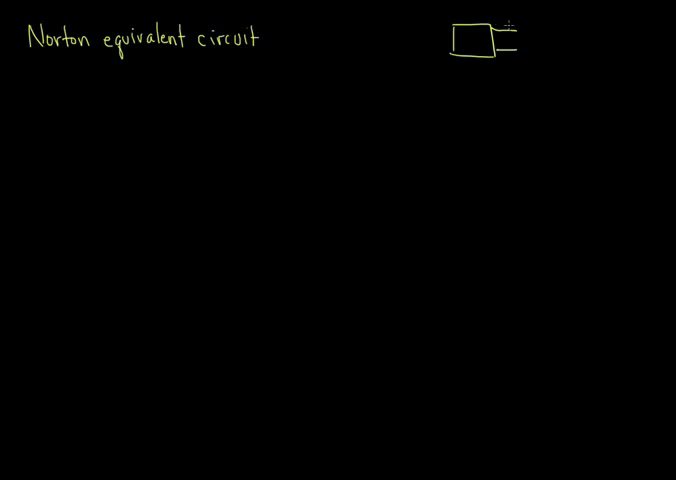 Norton equivalent circuit